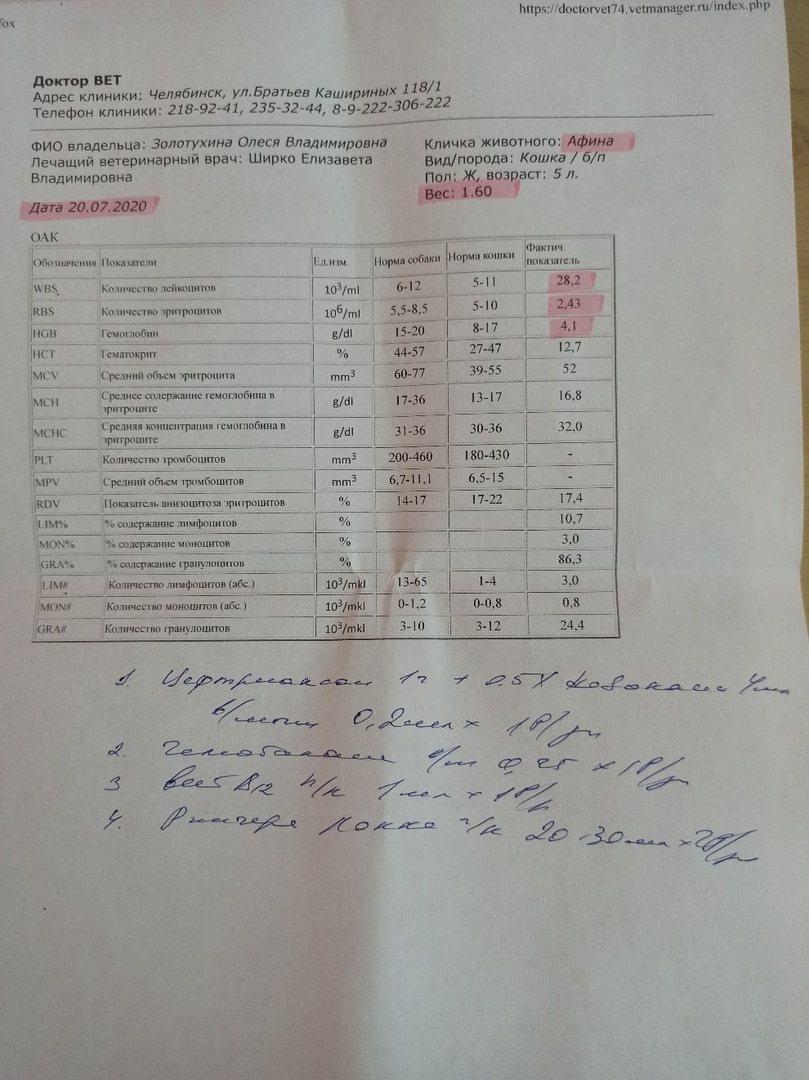 fox
https://doctorvet74.vetmanager.ru/index.php
Доктор ВЕТ
Адрес клиники: Челябинск, ул.Братьев Кашириных 118/1
Телефон клиники: 218-92-41, 235-32-44, 8-9-222-306-222
ФИО владельца: Золотухина Олеся Владимировна
Лечащий ветеринарный врач: Ширко Елизавета
Владимировна
Кличка животного: Афина
Вид/порода: Кошка / б/п
Пол: Ж, возраст: 5 л.
Вес: 1.60
Дата 20.07.2020
ОАК
Обозначения Показатели Ед.изм. Норма собаки Норма кошки Фактич. показатель
WBS Количество лейкоцитов 10³/ml 6-12 5-11 28,2
RBS Количество эритроцитов 10⁶/ml 5,5-8,5 5-10 2,43
HGB Гемоглобин g/dl 15-20 8-17 4,1
HCT Гематокрит % 44-57 27-47 12,7
MCV Средний объем эритроцита mm³ 60-77 39-55 52
MCH Среднее содержание гемоглобина в эритроците g/dl 17-36 13-17 16,8
MCHC Средняя концентрация гемоглобина в эритроците g/dl 31-36 30-36 32,0
PLT Количество тромбоцитов mm³ 200-460 180-430 -
MPV Средний объем тромбоцитов mm³ 6,7-11,1 6,5-15 -
RDV Показатель анизоцитоза эритроцитов % 14-17 17-22 17,4
LIM% % содержание лимфоцитов % 10,7
MON% % содержание моноцитов % 3,0
GRA% % содержание гранулоцитов % 86,3
LIM# Количество лимфоцитов (абс.) 10³/mkl 13-65 1-4 3,0
MON# Количество моноцитов (абс.) 10³/mkl 0-1,2 0-0,8 0,8
GRA# Количество гранулоцитов 10³/mkl 3-10 3-12 24,4
1. Цефтриаксон 1г + 0.5%
0,2мл х 1Р/дн
2. х 1Р/дн
3 В12 п/к 1мл х 1Р/
4. Рингера Локка п/к 20-30мл х